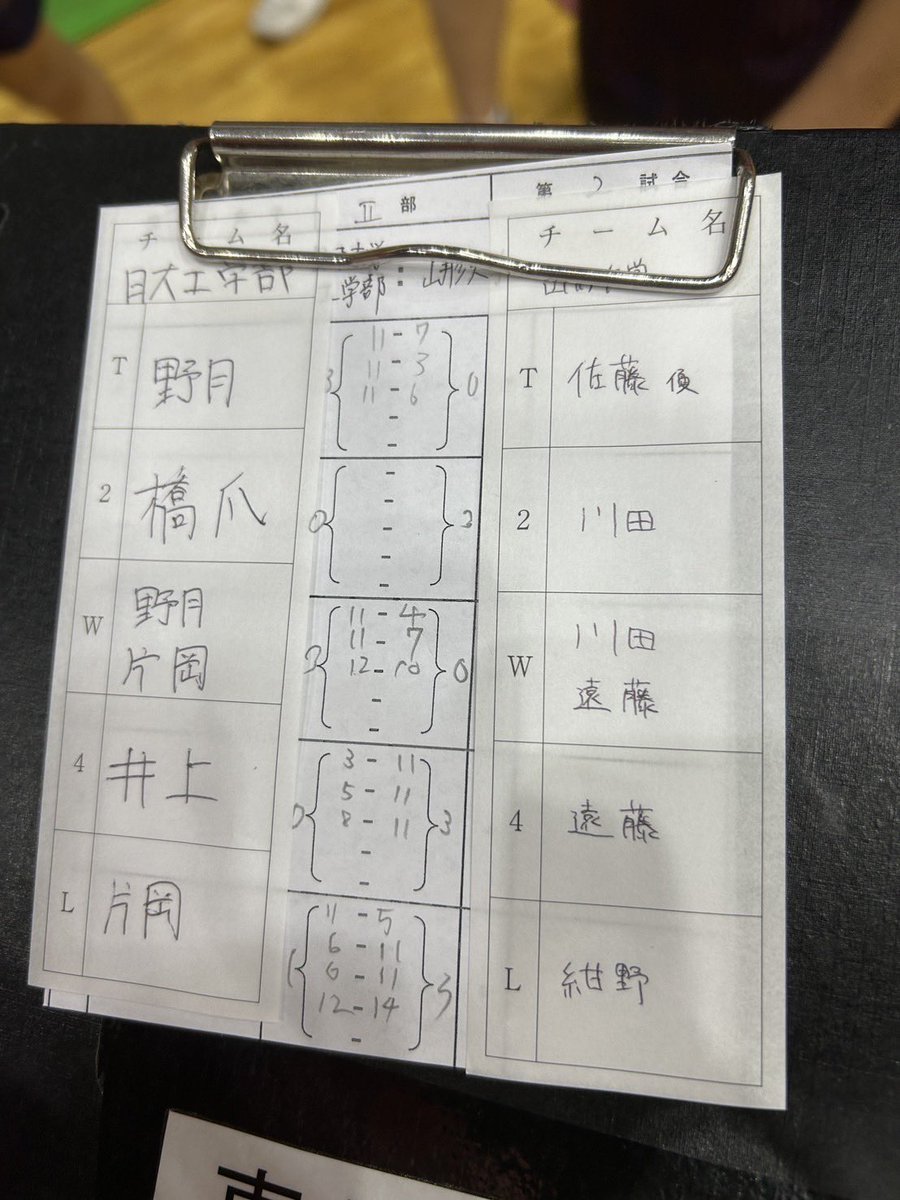 II 部
第 2 試合
チーム名
日大工学部
T 野月
2 橋爪
W 野月
片岡
4 井上
L 片岡
学部 : 山形大
3 { 11 - 7
11 - 3
11 - 6
-
- } 0
0 { -
-
-
-
- } 3
3 { 11 - 4
11 - 7
12 - 10
-
- } 0
0 { 3 - 11
5 - 11
8 - 11
-
- } 3
1 { 11 - 5
6 - 11
6 - 11
12 - 14
- } 3
チーム名
T 佐藤
2 川田
W 川田
遠藤
4 遠藤
L 紺野